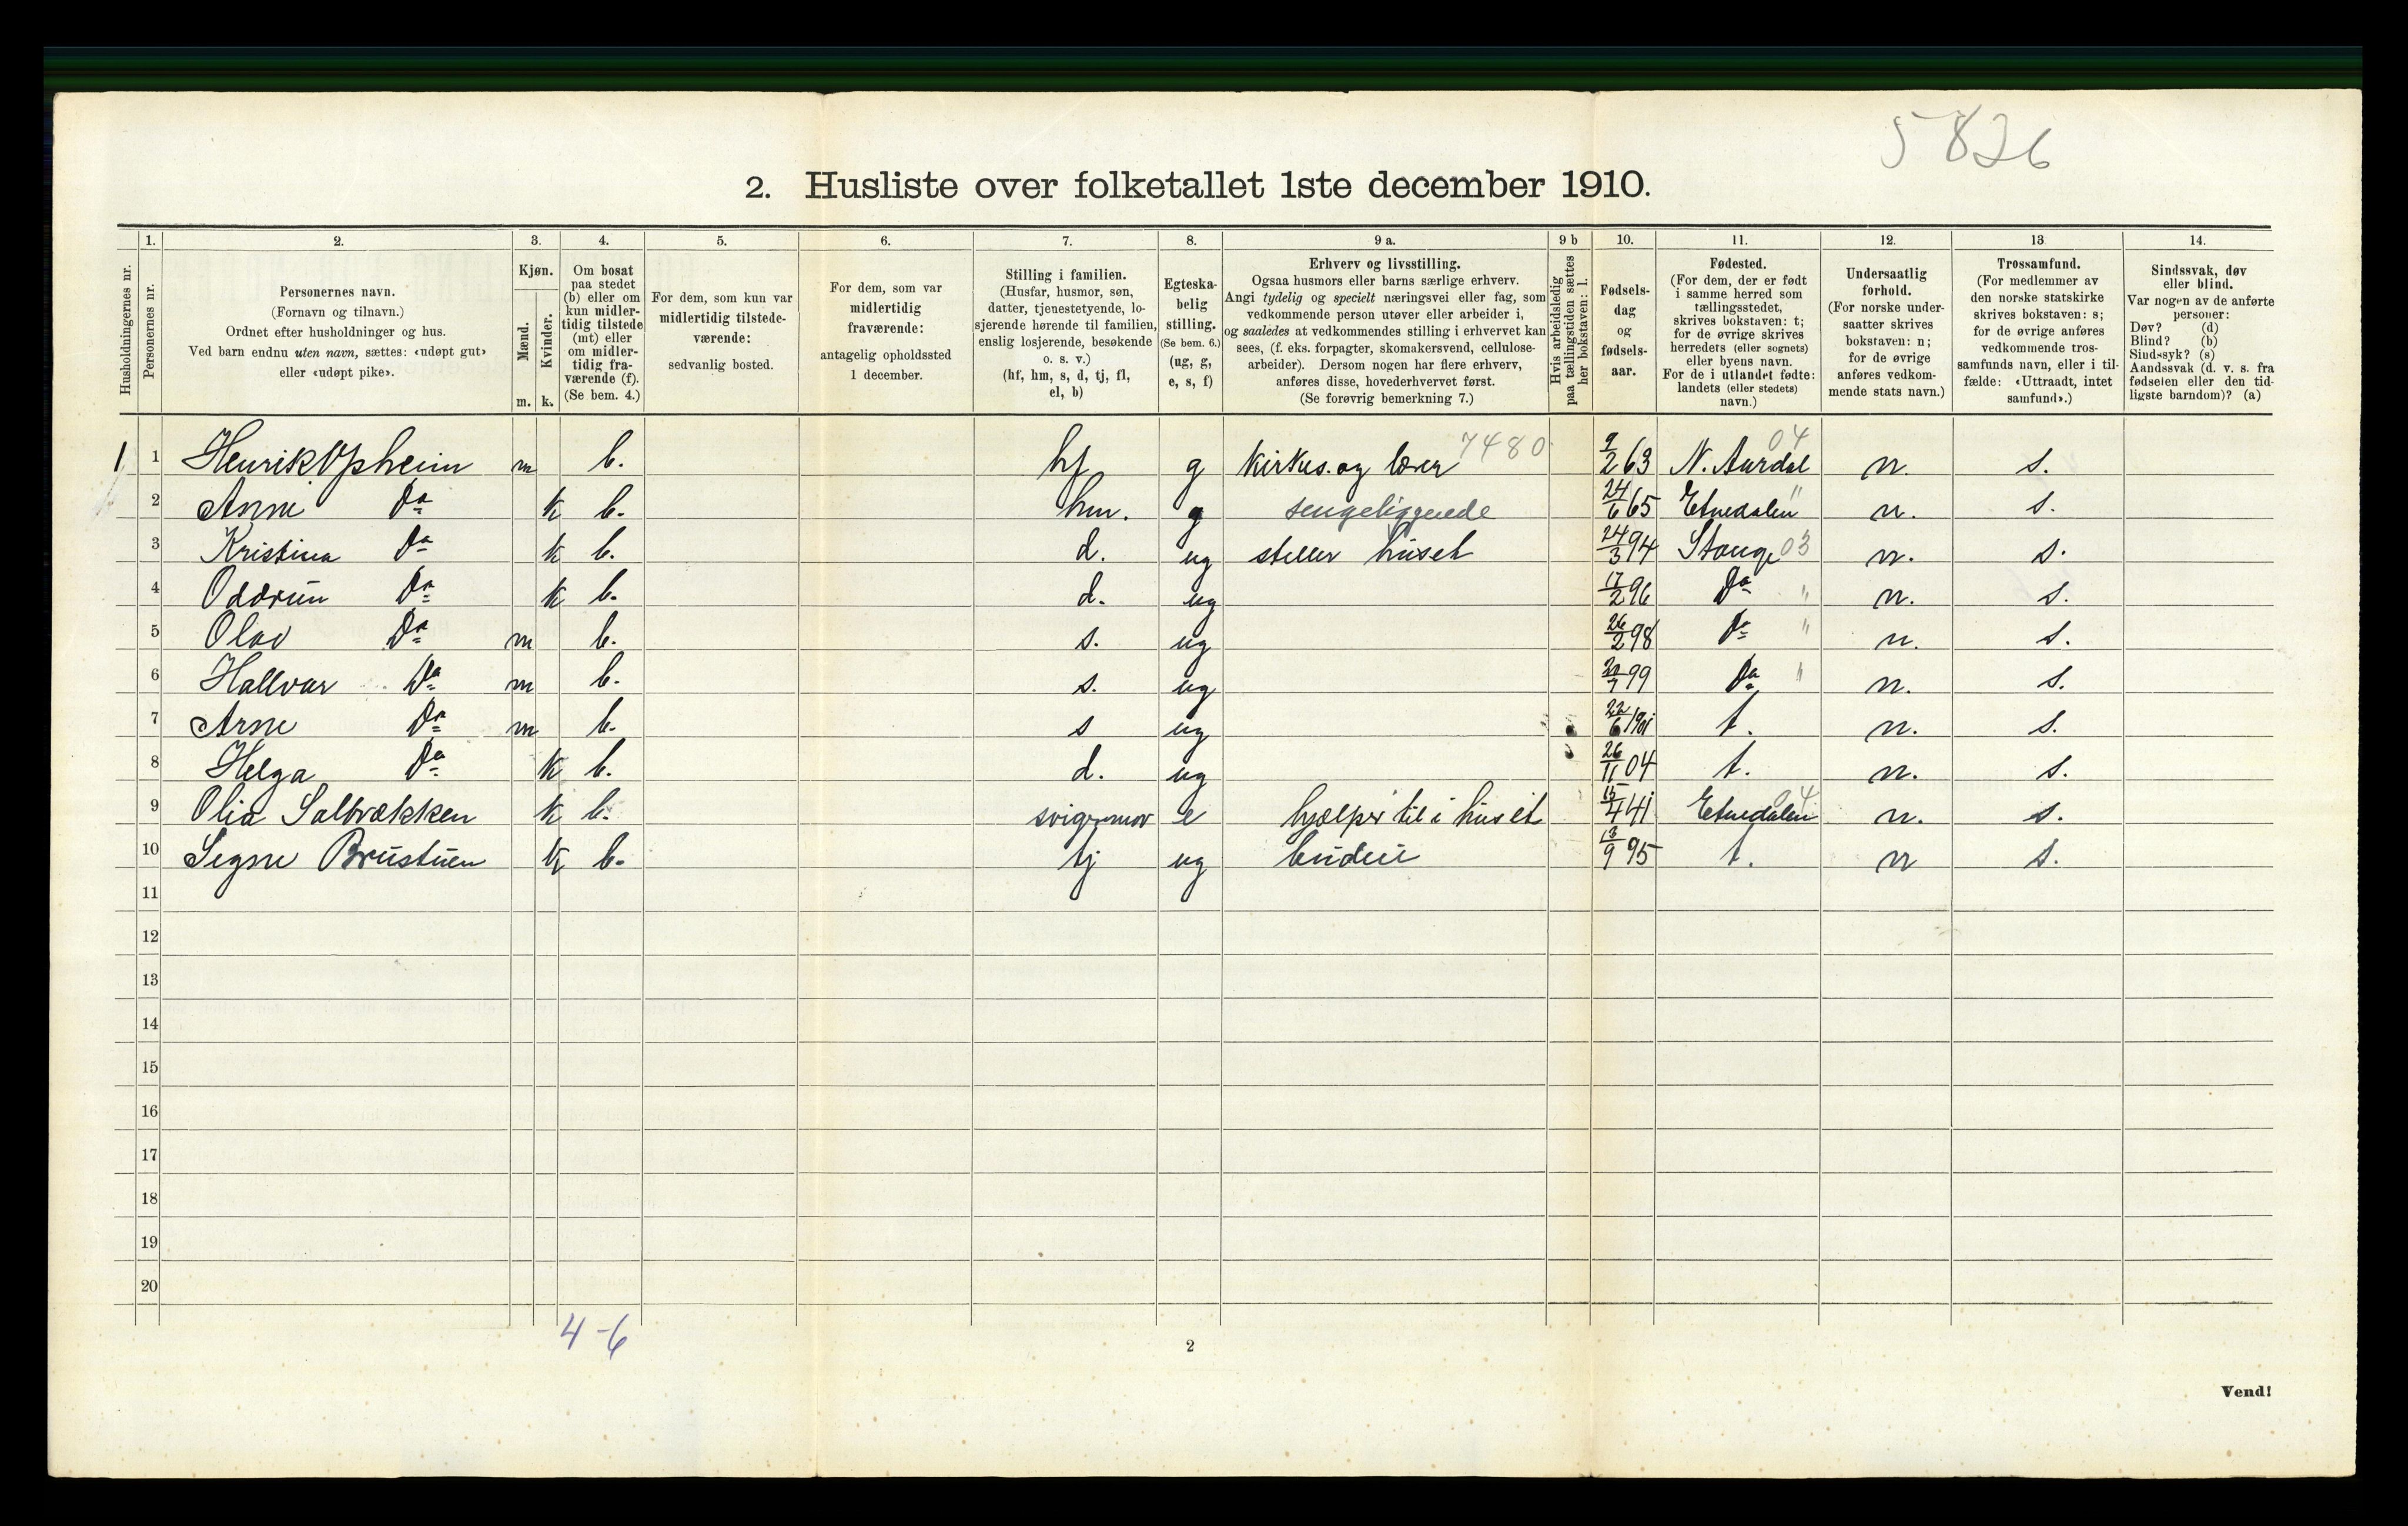 5826
2. Husliste over folketallet 1ste december 1910.
Husholdningernes nr.
1. Personernes nr.
2. Personernes navn.
(Fornavn og tilnavn.)
Ordnet efter husholdninger og hus.
Ved barn endnu uten navn, sættes: «udøpt gut»
eller «udøpt pike».
3. Kjøn.
Mænd. m.
Kvinder. k.
4. Om bosat
paa stedet
(b) eller om
kun midler-
tidig tilstede
(mt) eller
om midler-
tidig fra-
værende (f).
(Se bem. 4.)
5. For dem, som kun var
midlertidig tilstede-
værende:
sedvanlig bosted.
6. For dem, som var
midlertidig
fraværende:
antagelig opholdssted
1 december.
7. Stilling i familien.
(Husfar, husmor, søn,
datter, tjenestetyende, lo-
sjerende hørende til familien,
enslig losjerende, besøkende
o. s. v.)
(hf, hm, s, d, tj, fl,
el, b)
8. Egteska-
belig
stilling.
(Se bem. 6.)
(ug, g,
e, s, f)
9 a. Erhverv og livsstilling.
Ogsaa husmors eller barns særlige erhverv.
Angi tydelig og specielt næringsvei eller fag, som
vedkommende person utøver eller arbeider i,
og saaledes at vedkommendes stilling i erhvervet kan
sees, (f. eks. forpagter, skomakersvend, cellulose-
arbeider). Dersom nogen har flere erhverv,
anføres disse, hovederhvervet først.
(Se forøvrig bemerkning 7.)
9 b Hvis arbeidsledig
paa tællingstiden sættes
her bokstaven: l.
10. Fødsels-
dag
og
fødsels-
aar.
11. Fødested.
(For dem, der er født
i samme herred som
tællingsstedet,
skrives bokstaven: t;
for de øvrige skrives
herredets (eller sognets)
eller byens navn.
For de i utlandet fødte:
landets (eller stedets)
navn.)
12. Undersaatlig
forhold.
(For norske under-
saatter skrives
bokstaven: n;
for de øvrige
anføres vedkom-
mende stats navn.)
13 Trossamfund.
(For medlemmer av
den norske statskirke
skrives bokstaven: s;
for de øvrige anføres
vedkommende tros-
samfunds navn, eller i til-
fælde: «Uttraadt, intet
samfund».)
14. Sindssvak, døv
eller blind.
Var nogen av de anførte
personer:
Døv? (d)
Blind? (b)
Sindssyk? (s)
Aandssvak (d. v. s. fra
fødselen eller den tid-
ligste barndom)? (a)
1 1 Henrik Opheim m b. hf g Kirkes. og lærer 7480 9/2 63 N. Aurdal 04 n. s.
2 Anne Do k b. hm. g sengeliggende 24/6 65 Etnedalen " n. s.
3 Kristina Do k b. d. ug steller huset 24/3 94 Stange 03 n. s.
4 Oddrun Do k b. d. ug 17/2 96 Do " n. s.
5 Olav Do m b. s. ug 26/2 98 Do " n. s.
6 Hallvar Do m b. s. ug 99 Do " n. s.
7 Arne Do m b. s ug 22/6 1901 t. n. s.
8 Helga Do k b. d. ug 26/11 04 t. n. s.
9 Olia k b. svigermor e hjælper til i huset 15/4 41 Etnedalen 04 n. s.
10 Signe Brustuen k b. tj ug budeie 13/9 95 t. n s.
11
12
13
14
15
16
17
18
19
20
4-6
2
Vend!